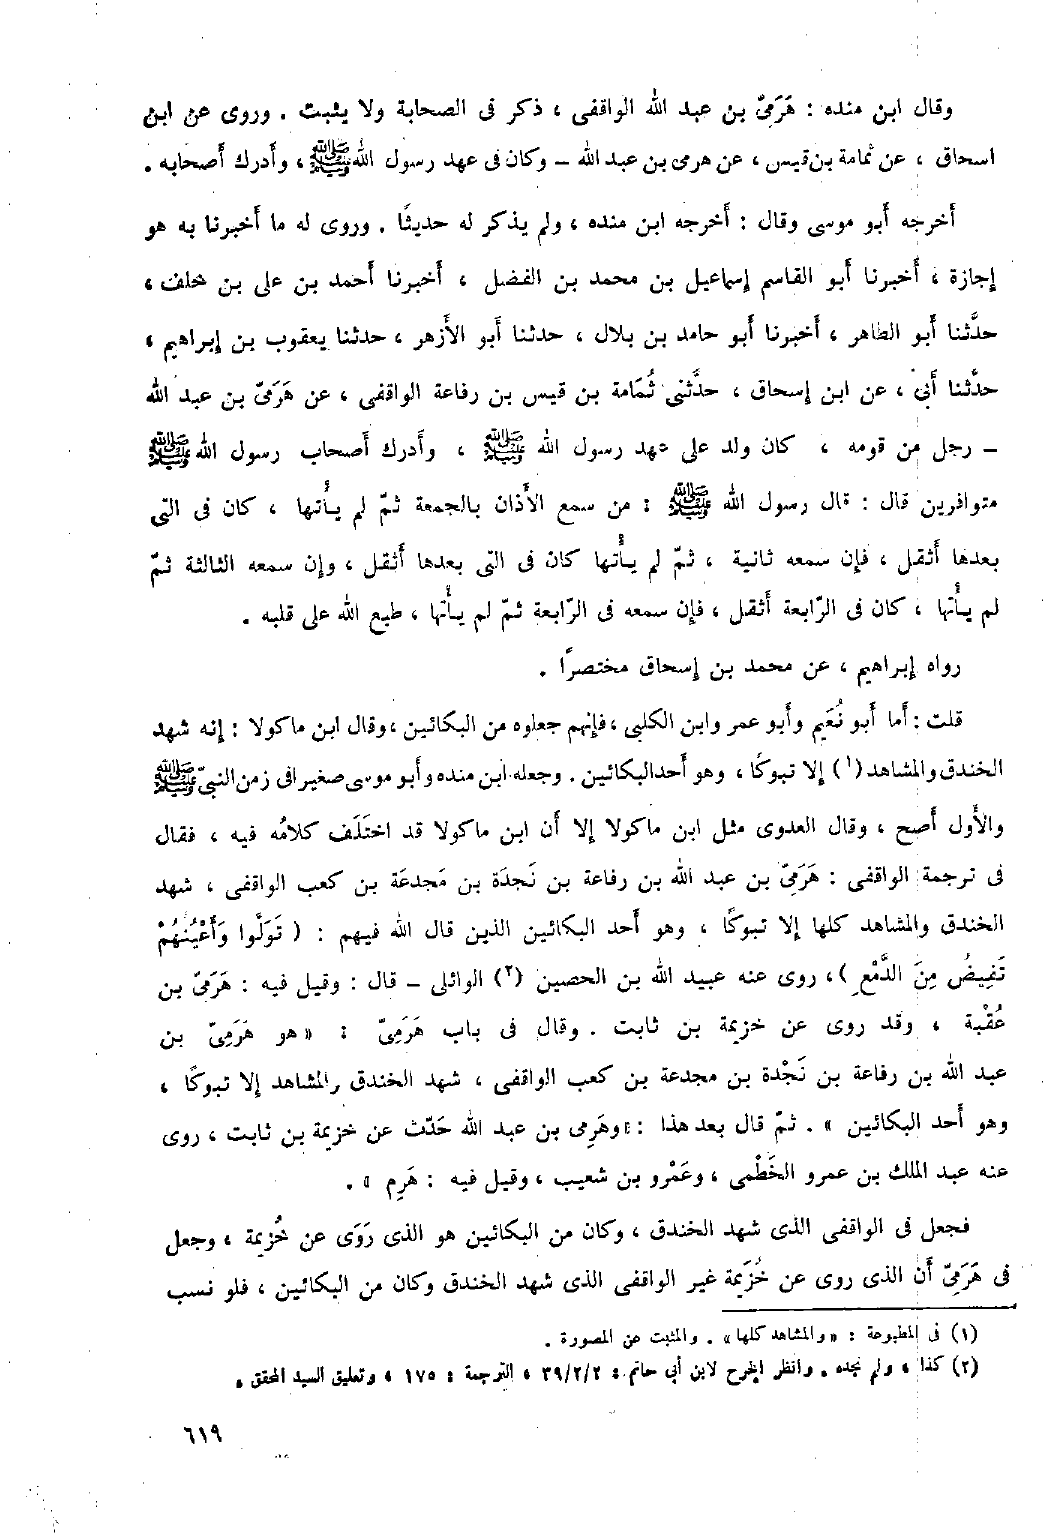 وقال ابن منده : هَرَمِىّ بن عبد الله الواقفى ، ذكر فى الصحابة ولا يثبت . وروى عن ابن
اسحاق ، عن ثمامة بن قيس ، عن هرمى بن عبد الله – وكان فى عهد رسول الله ﷺ ، وأدرك أصحابه .
أخرجه أبو موسى وقال : أخرجه ابن منده ، ولم يذكر له حديثًا . وروى له ما أخبرنا به هو
إجازة ، أخبرنا أبو القاسم إسماعيل بن محمد بن الفضل ، أخبرنا أحمد بن على بن خلف ،
حدَّثنا أبو الطاهر ، أخبرنا أبو حامد بن بلال ، حدثنا أبو الأزهر ، حدثنا يعقوب بن إبراهيم ،
حدَّثنا أبى ، عن ابن إسحاق ، حدَّثنى ثُمَامة بن قيس بن رفاعة الواقفى ، عن هَرَمِىّ بن عبد الله
– رجل من قومه ، كان ولد على عهد رسول الله ﷺ ، وأدرك أصحاب رسول الله ﷺ
متوافرين قال : قال رسول الله ﷺ : من سمع الأذان بالجمعة ثمّ لم يأتها ، كان فى التى
بعدها أثقل ، فإن سمعه ثانية ، ثمّ لم يأتها كان فى التى بعدها أثقل ، وإن سمعه الثالثة ثمّ
لم يأتها ، كان فى الرّابعة أثقل ، فإن سمعه فى الرّابعة ثمّ لم يأتها ، طبع الله على قلبه .
رواه إبراهيم ، عن محمد بن إسحاق مختصرًا .
قلت : أما أبو نُعَيم وأبو عمر وابن الكلبى ، فإنهم جعلوه من البكائين ، وقال ابن ماكولا : إنه شهد
الخندق والمشاهد (١) إلا تبوكًا ، وهو أحد البكائين . وجعله ابن منده وأبو موسى صغيرا فى زمن النبىّ ﷺ
والأول أصح ، وقال العدوى مثل ابن ماكولا إلا أن ابن ماكولا قد اختَلَف كلامُه فيه ، فقال
فى ترجمة الواقفى : هَرَمِىّ بن عبد الله بن رفاعة بن نَجدَة بن مَجدعَة بن كعب الواقفى ، شهد
الخندق والمشاهد كلها إلا تبوكًا ، وهو أحد البكائين الذين قال الله فيهم : ( تَوَلَّوا وَأَعْيُنهُمْ
تَفِيضُ مِنَ الدَّمْعِ ) ، روى عنه عبيد الله بن الحصين (٢) الوائلى – قال : وقيل فيه : هَرَمِىّ بن
عُقْبة ، وقد روى عن خزيمة بن ثابت . وقال فى باب هَرَمِىّ : « هو هَرَمِىّ بن
عبد الله بن رفاعة بن نَجْدة بن مجدعة بن كعب الواقفى ، شهد الخندق والمشاهد إلا تبوكًا ،
وهو أحد البكائين » . ثمّ قال بعد هذا : « وهَرمِى بن عبد الله حَدّث عن خزيمة بن ثابت ، روى
عنه عبد الملك بن عمرو الخَطْمى ، وعَمْرو بن شعيب ، وقيل فيه : هَرِم » .
فجعل فى الواقفى الذى شهد الخندق ، وكان من البكائين هو الذى رَوَى عن خُزيمة ، وجعل
فى هَرَمِىّ أن الذى روى عن خُزَيمة غير الواقفى الذى شهد الخندق وكان من البكائين ، فلو نسب
(١) فى المطبوعة : « والمشاهد كلها » . والمثبت عن المصورة .
(٢) كذا ، ولم نجده . وانظر الجرح لابن أبى حاتم : ٣٩/٢/٢ ، الترجمة : ١٧٥ ، وتعليق السيد المحقق .
٦١٩